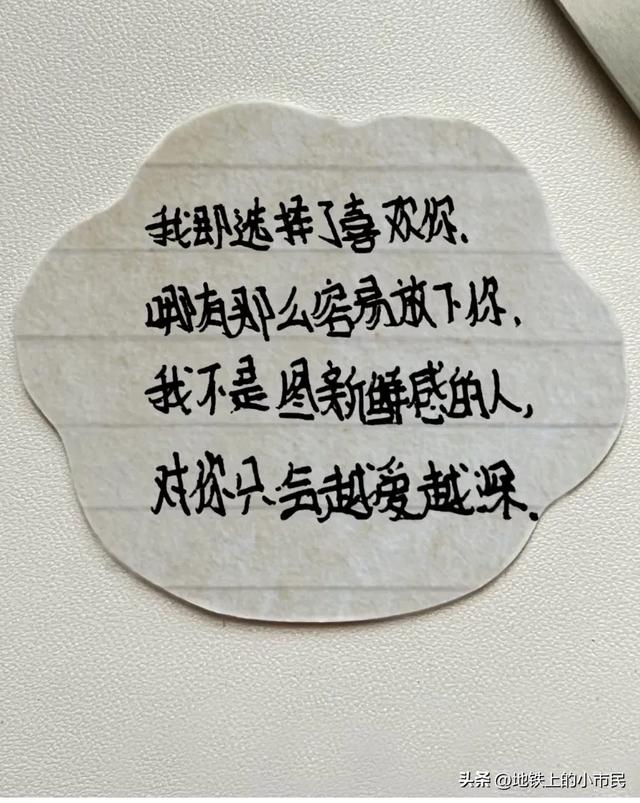 我即选择了喜欢你.
哪有那么容易放下你,
我不是图新鲜感的人,
对你只会越爱越深.
头条 @地铁上的小市民